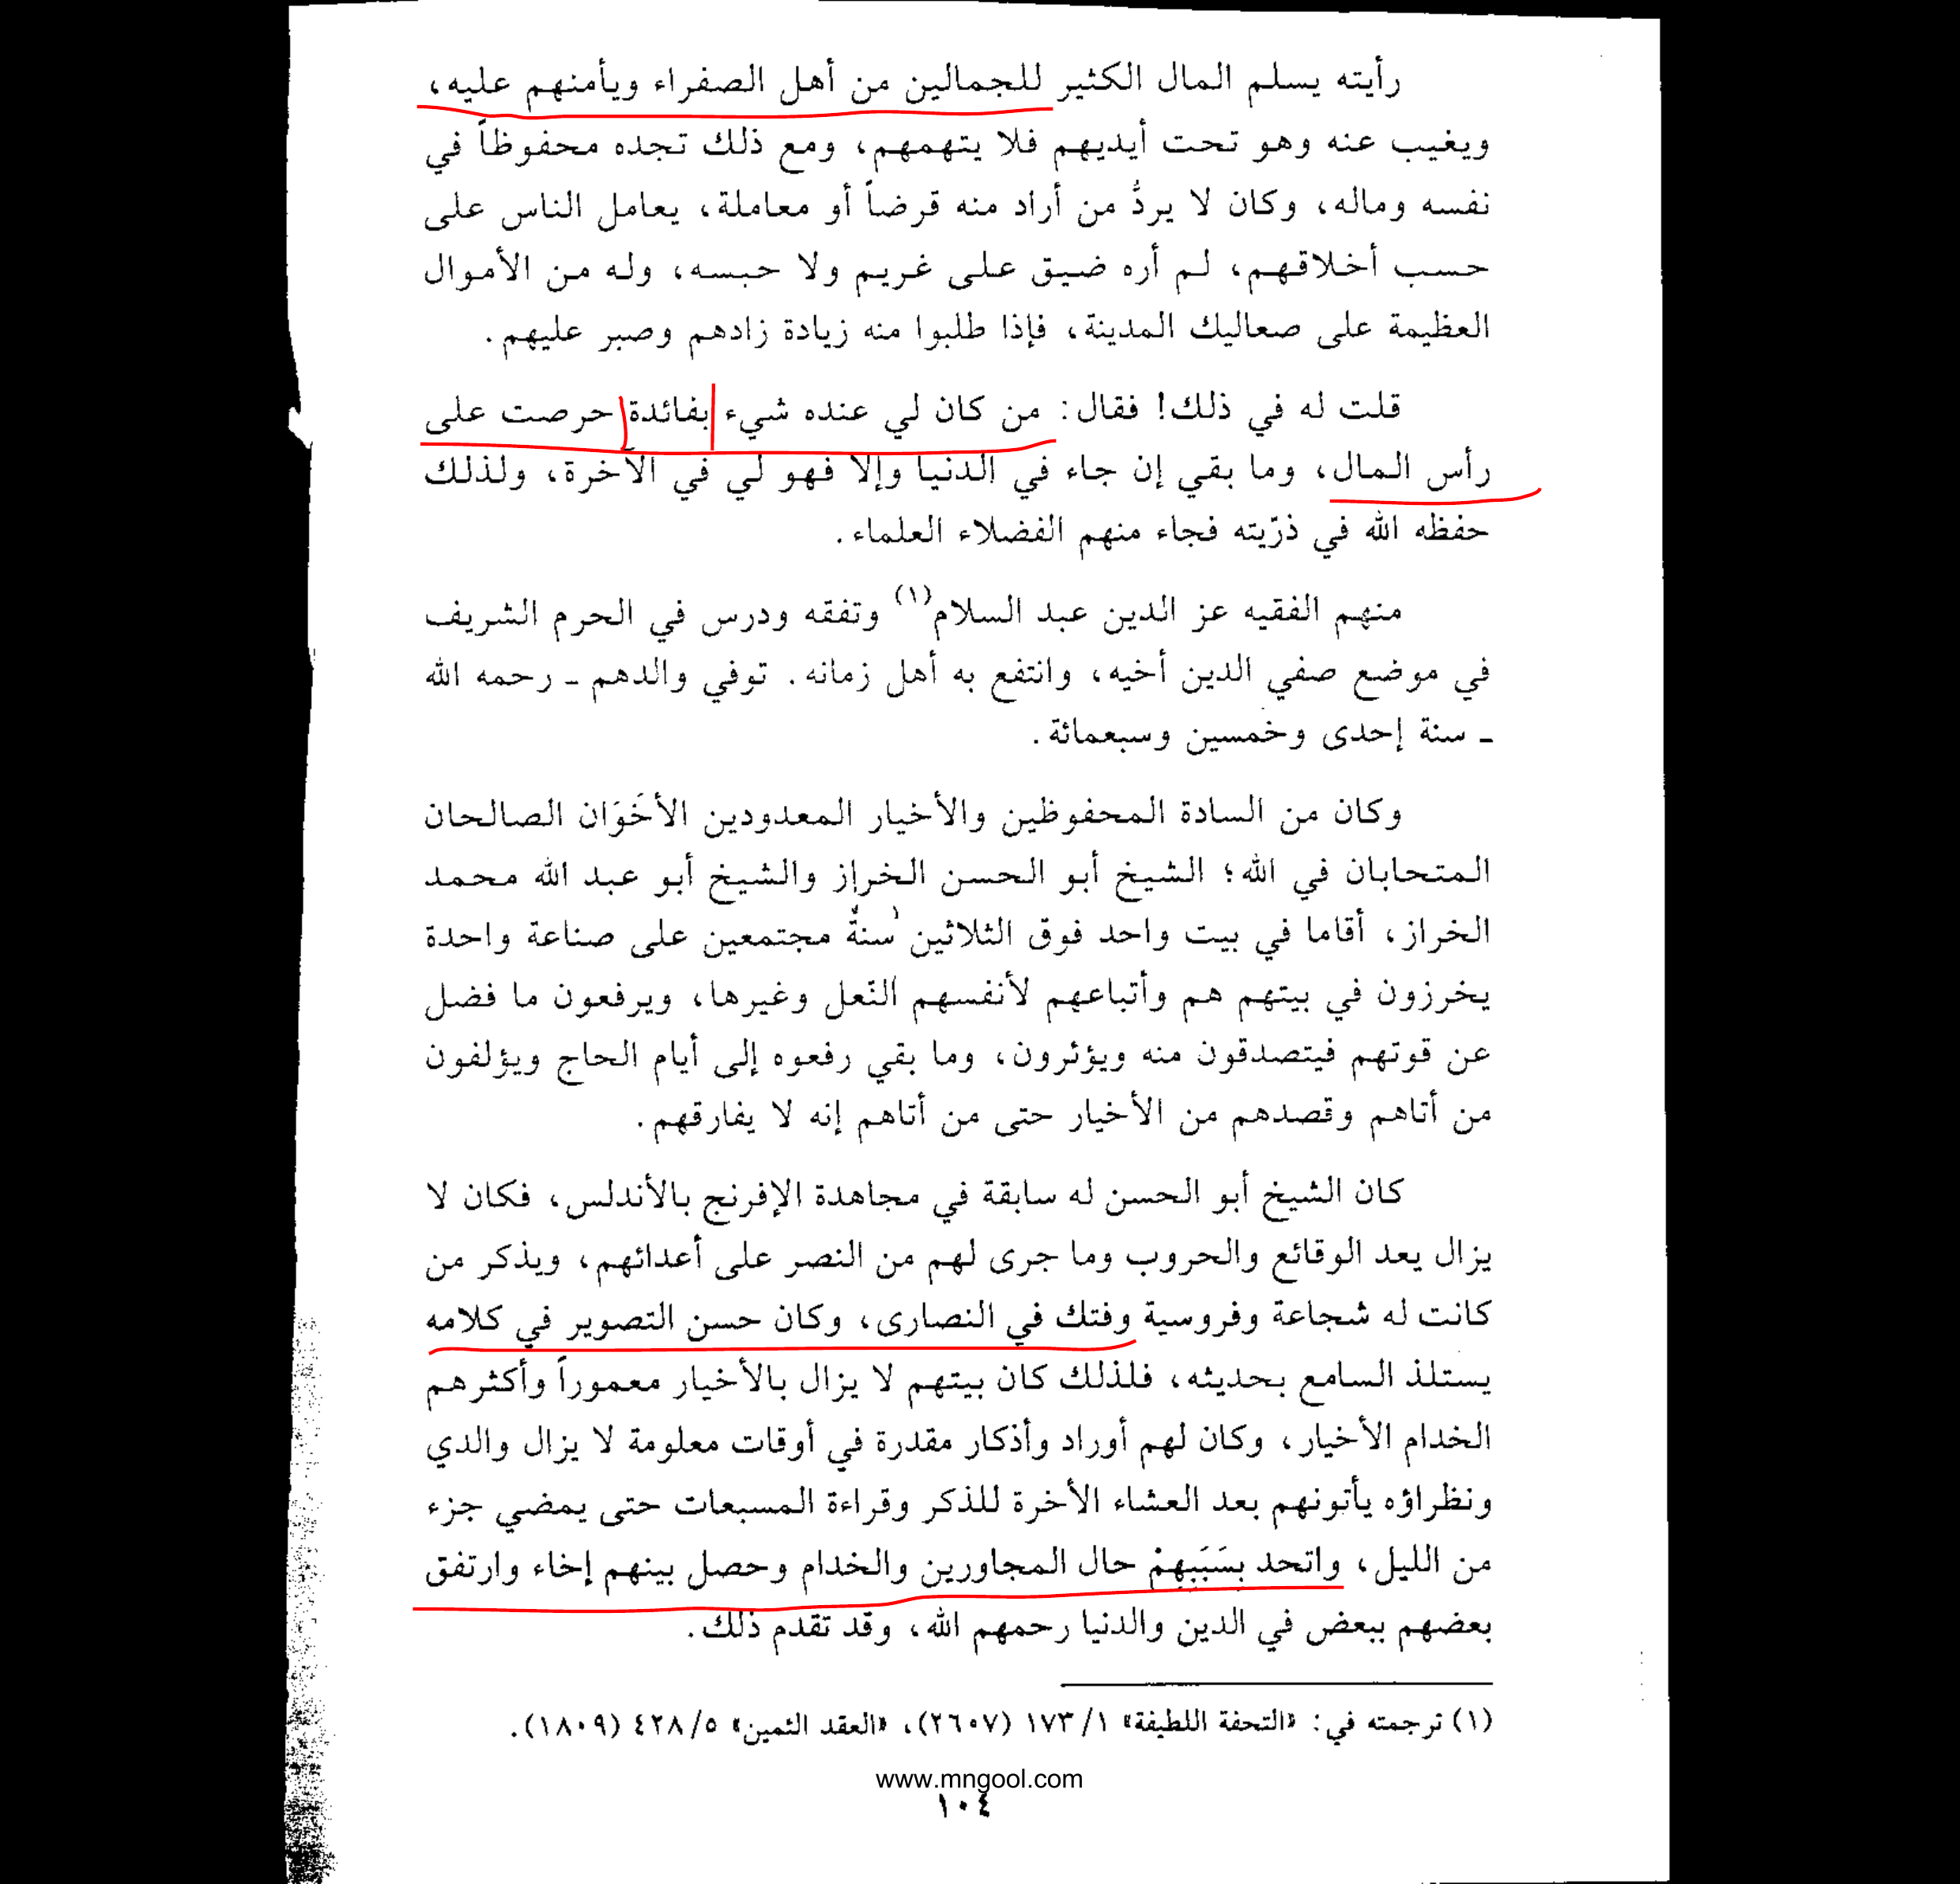 رأيته يسلم المال الكثير للجمالين من أهل الصفراء ويأمنهم عليه،
ويغيب عنه وهو تحت أيديهم فلا يتهمهم، ومع ذلك تجده محفوظاً في
نفسه وماله، وكان لا يردُّ من أراد منه قرضاً أو معاملة، يعامل الناس على
حسب أخلاقهم، لم أره ضيق على غريم ولا حبسه، وله من الأموال
العظيمة على صعاليك المدينة، فإذا طلبوا منه زيادة زادهم وصبر عليهم.
قلت له في ذلك! فقال: من كان لي عنده شيء بفائدة حرصت على
رأس المال، وما بقي إن جاء في الدنيا وإلا فهو لي في الآخرة، ولذلك
حفظه الله في ذرّيته فجاء منهم الفضلاء العلماء.
منهم الفقيه عز الدين عبد السلام(١) وتفقه ودرس في الحرم الشريف
في موضع صفي الدين أخيه، وانتفع به أهل زمانه. توفي والدهم ـ رحمه الله
ـ سنة إحدى وخمسين وسبعمائة.
وكان من السادة المحفوظين والأخيار المعدودين الأخَوَان الصالحان
المتحابان في الله؛ الشيخ أبو الحسن الخراز والشيخ أبو عبد الله محمد
الخراز، أقاما في بيت واحد فوق الثلاثين سنةً مجتمعين على صناعة واحدة
يخرزون في بيتهم هم وأتباعهم لأنفسهم النّعل وغيرها، ويرفعون ما فضل
عن قوتهم فيتصدقون منه ويؤثرون، وما بقي رفعوه إلى أيام الحاج ويؤلفون
من أتاهم وقصدهم من الأخيار حتى من أتاهم إنه لا يفارقهم.
كان الشيخ أبو الحسن له سابقة في مجاهدة الإفرنج بالأندلس، فكان لا
يزال يعد الوقائع والحروب وما جرى لهم من النصر على أعدائهم، ويذكر من
كانت له شجاعة وفروسية وفتك في النصارى، وكان حسن التصوير في كلامه
يستلذ السامع بحديثه، فلذلك كان بيتهم لا يزال بالأخيار معموراً وأكثرهم
الخدام الأخيار، وكان لهم أوراد وأذكار مقدرة في أوقات معلومة لا يزال والدي
ونظراؤه يأتونهم بعد العشاء الأخرة للذكر وقراءة المسبعات حتى يمضي جزء
من الليل، واتحد بسَبَبِهِمْ حال المجاورين والخدام وحصل بينهم إخاء وارتفق
بعضهم ببعض في الدين والدنيا رحمهم الله، وقد تقدم ذلك.
(١) ترجمته في: «التحفة اللطيفة» ١/ ١٧٣ (٢٦٠٧)، «العقد الثمين» ٥/ ٤٢٨ (١٨٠٩).
www.mngool.com
١٠٤